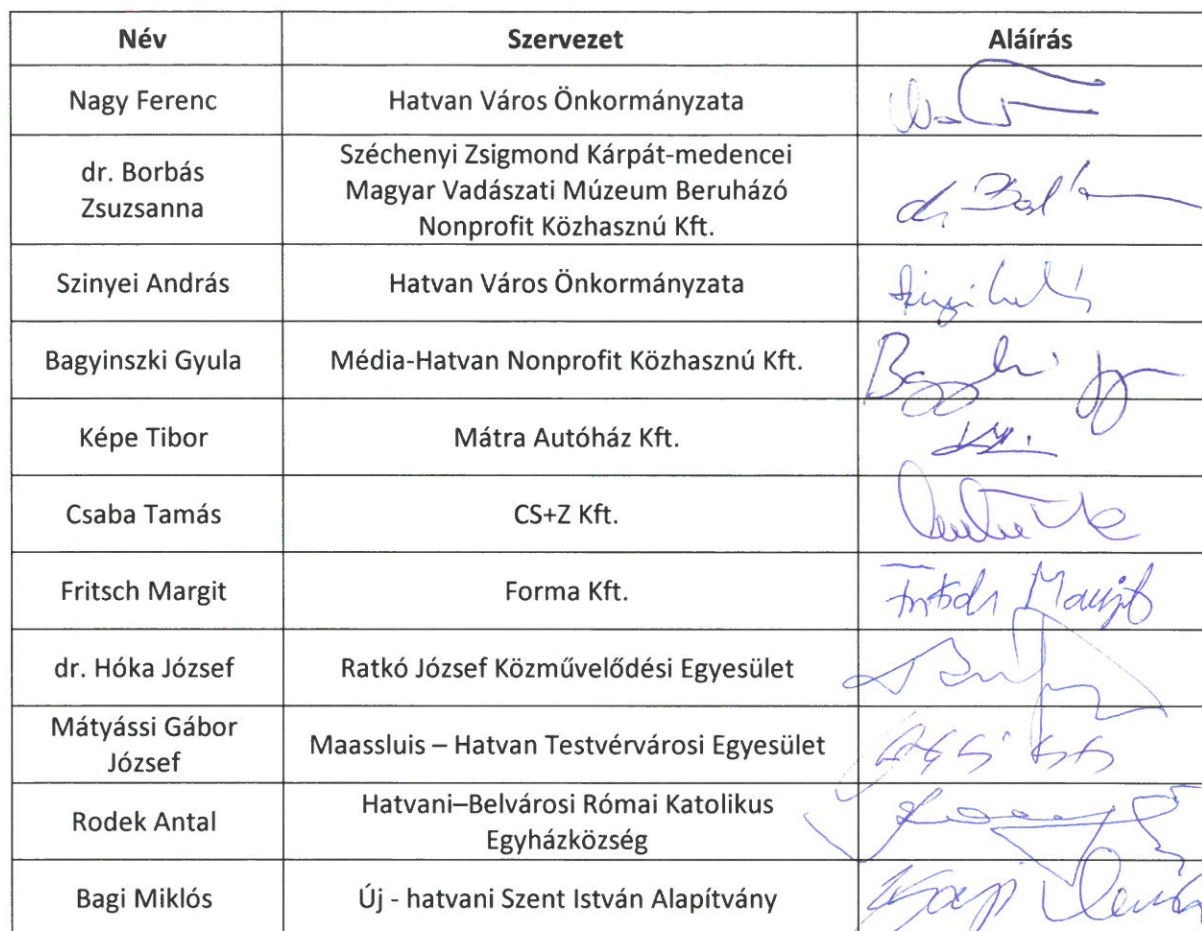 Név Szervezet Aláírás
Nagy Ferenc Hatvan Város Önkormányzata
dr. Borbás
Zsuzsanna
Széchenyi Zsigmond Kárpát-medencei
Magyar Vadászati Múzeum Beruházó
Nonprofit Közhasznú Kft.
Szinyei András Hatvan Város Önkormányzata
Bagyinszki Gyula Média-Hatvan Nonprofit Közhasznú Kft.
Képe Tibor Mátra Autóház Kft.
Csaba Tamás CS+Z Kft.
Fritsch Margit Forma Kft. Fritsch Margit
dr. Hóka József Ratkó József Közművelődési Egyesület
Mátyássi Gábor
József
Maassluis – Hatvan Testvérvárosi Egyesület
Rodek Antal
Hatvani–Belvárosi Római Katolikus
Egyházközség
Bagi Miklós Új - hatvani Szent István Alapítvány